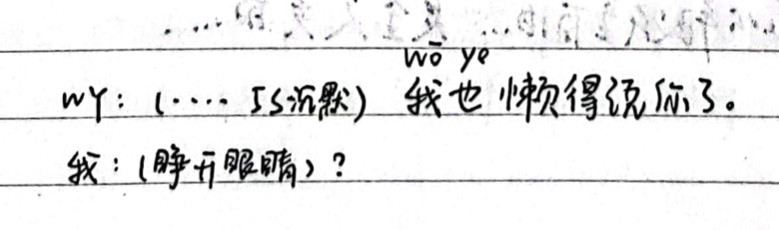 wǒ ye
WY:(.... 5s沉默) 我也懒得说你了。
我:(睁开眼睛)?